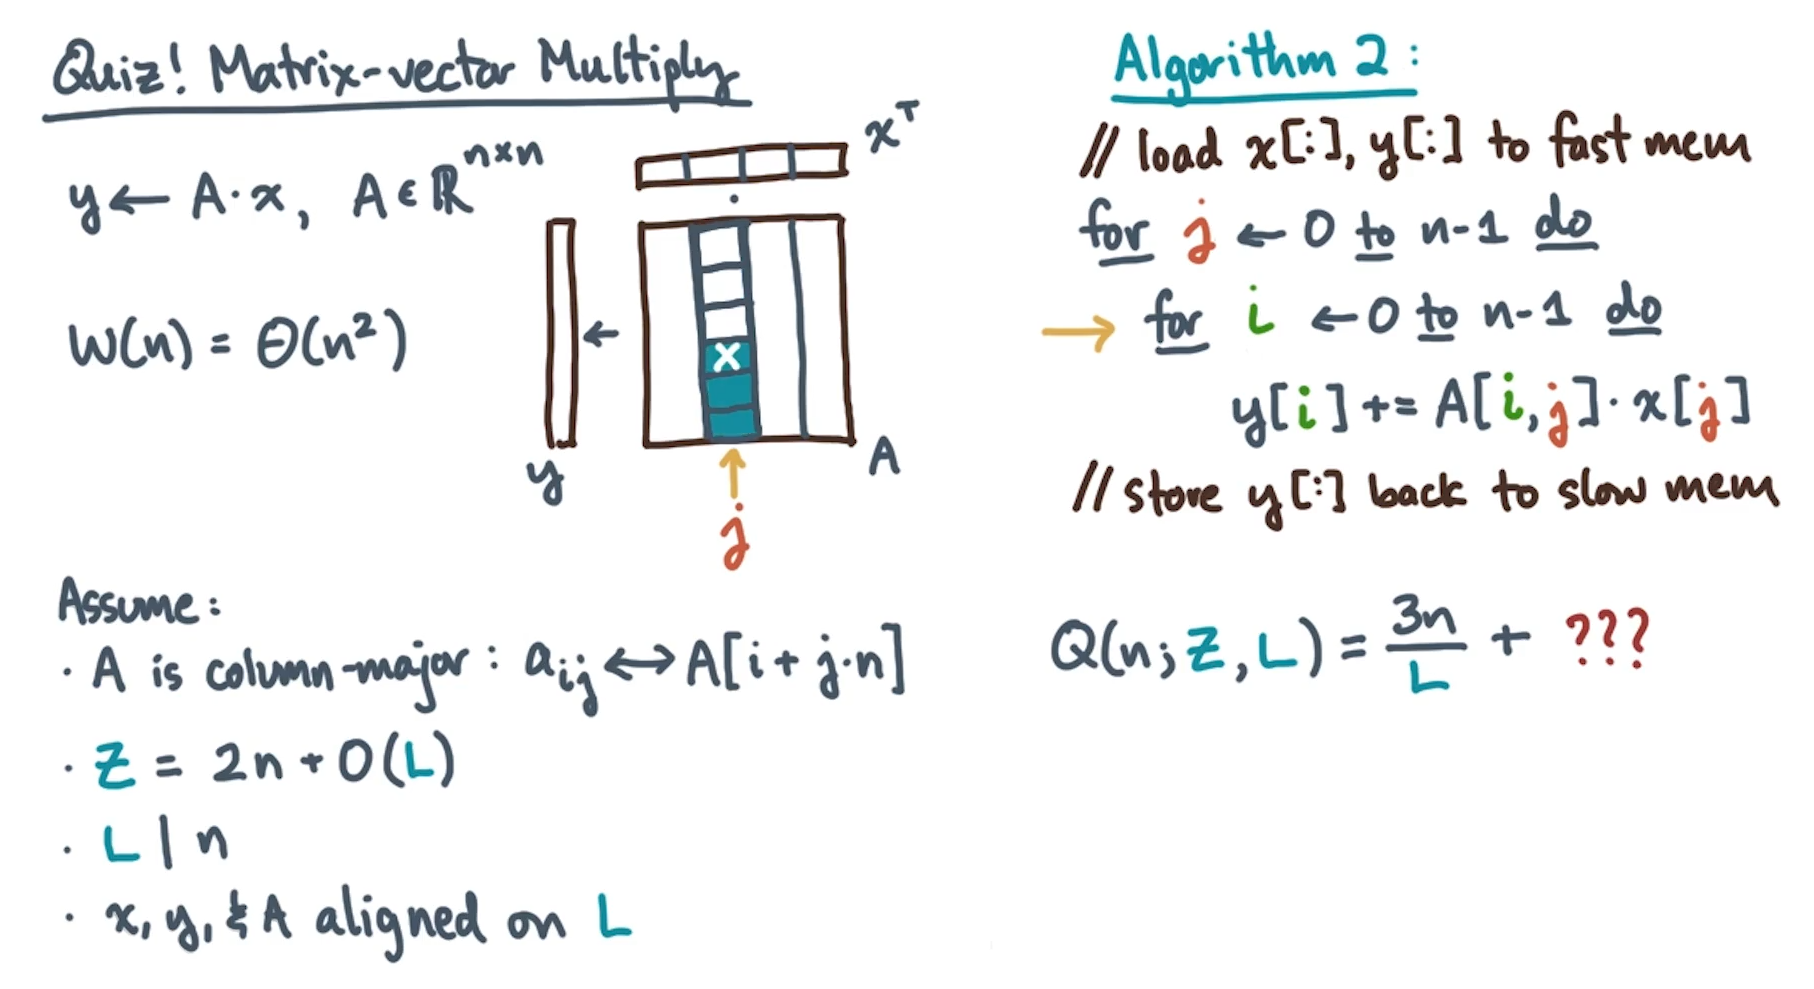 Quiz! Matrix-vector Multiply
y ← A·x, A ∈ ℝ^{n×n}
W(n) = Θ(n²)
x^T
x
y
A
j
Assume:
· A is column-major: a_{ij} ↔ A[i + j·n]
· Z = 2n + O(L)
· L | n
· x, y, & A aligned on L
Algorithm 2:
// load x[:], y[:] to fast mem
for j ← 0 to n-1 do
→ for i ← 0 to n-1 do
y[i] += A[i,j]·x[j]
// store y[:] back to slow mem
Q(n; Z, L) = 3n/L + ???